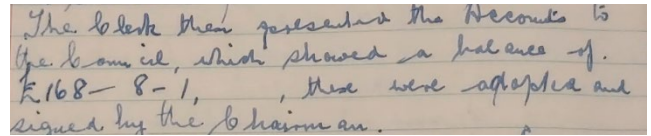 The Clerk then presented the Accounts to
the Council, which showed a balance of.
£168 - 8 - 1, , these were adopted and
signed by the Chairman.